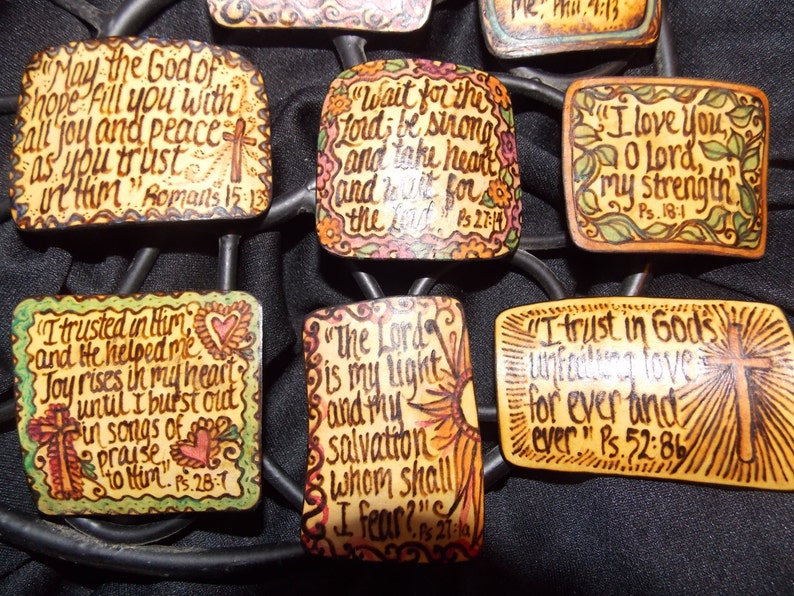 Me." Phil. 4:13
"May the God of
hope fill you with
all joy and peace
as you trust
in Him." Romans 15:13
"Wait for the
Lord; be strong
and take heart
and wait for
the Lord." Ps. 27:14
"I love You,
O Lord,
my strength"
Ps. 18:1
"I trusted in Him,
and He helped me.
Joy rises in my heart
until I burst out
in songs of
praise
to Him." Ps. 28:7
"The Lord
is my light
and my
salvation
whom shall
I fear?" Ps 27:1a
"I trust in God's
unfailing love
for ever and
ever." Ps. 52:8b